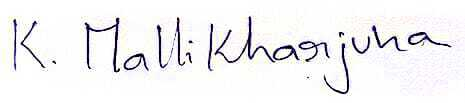 K. Mallikharjuna